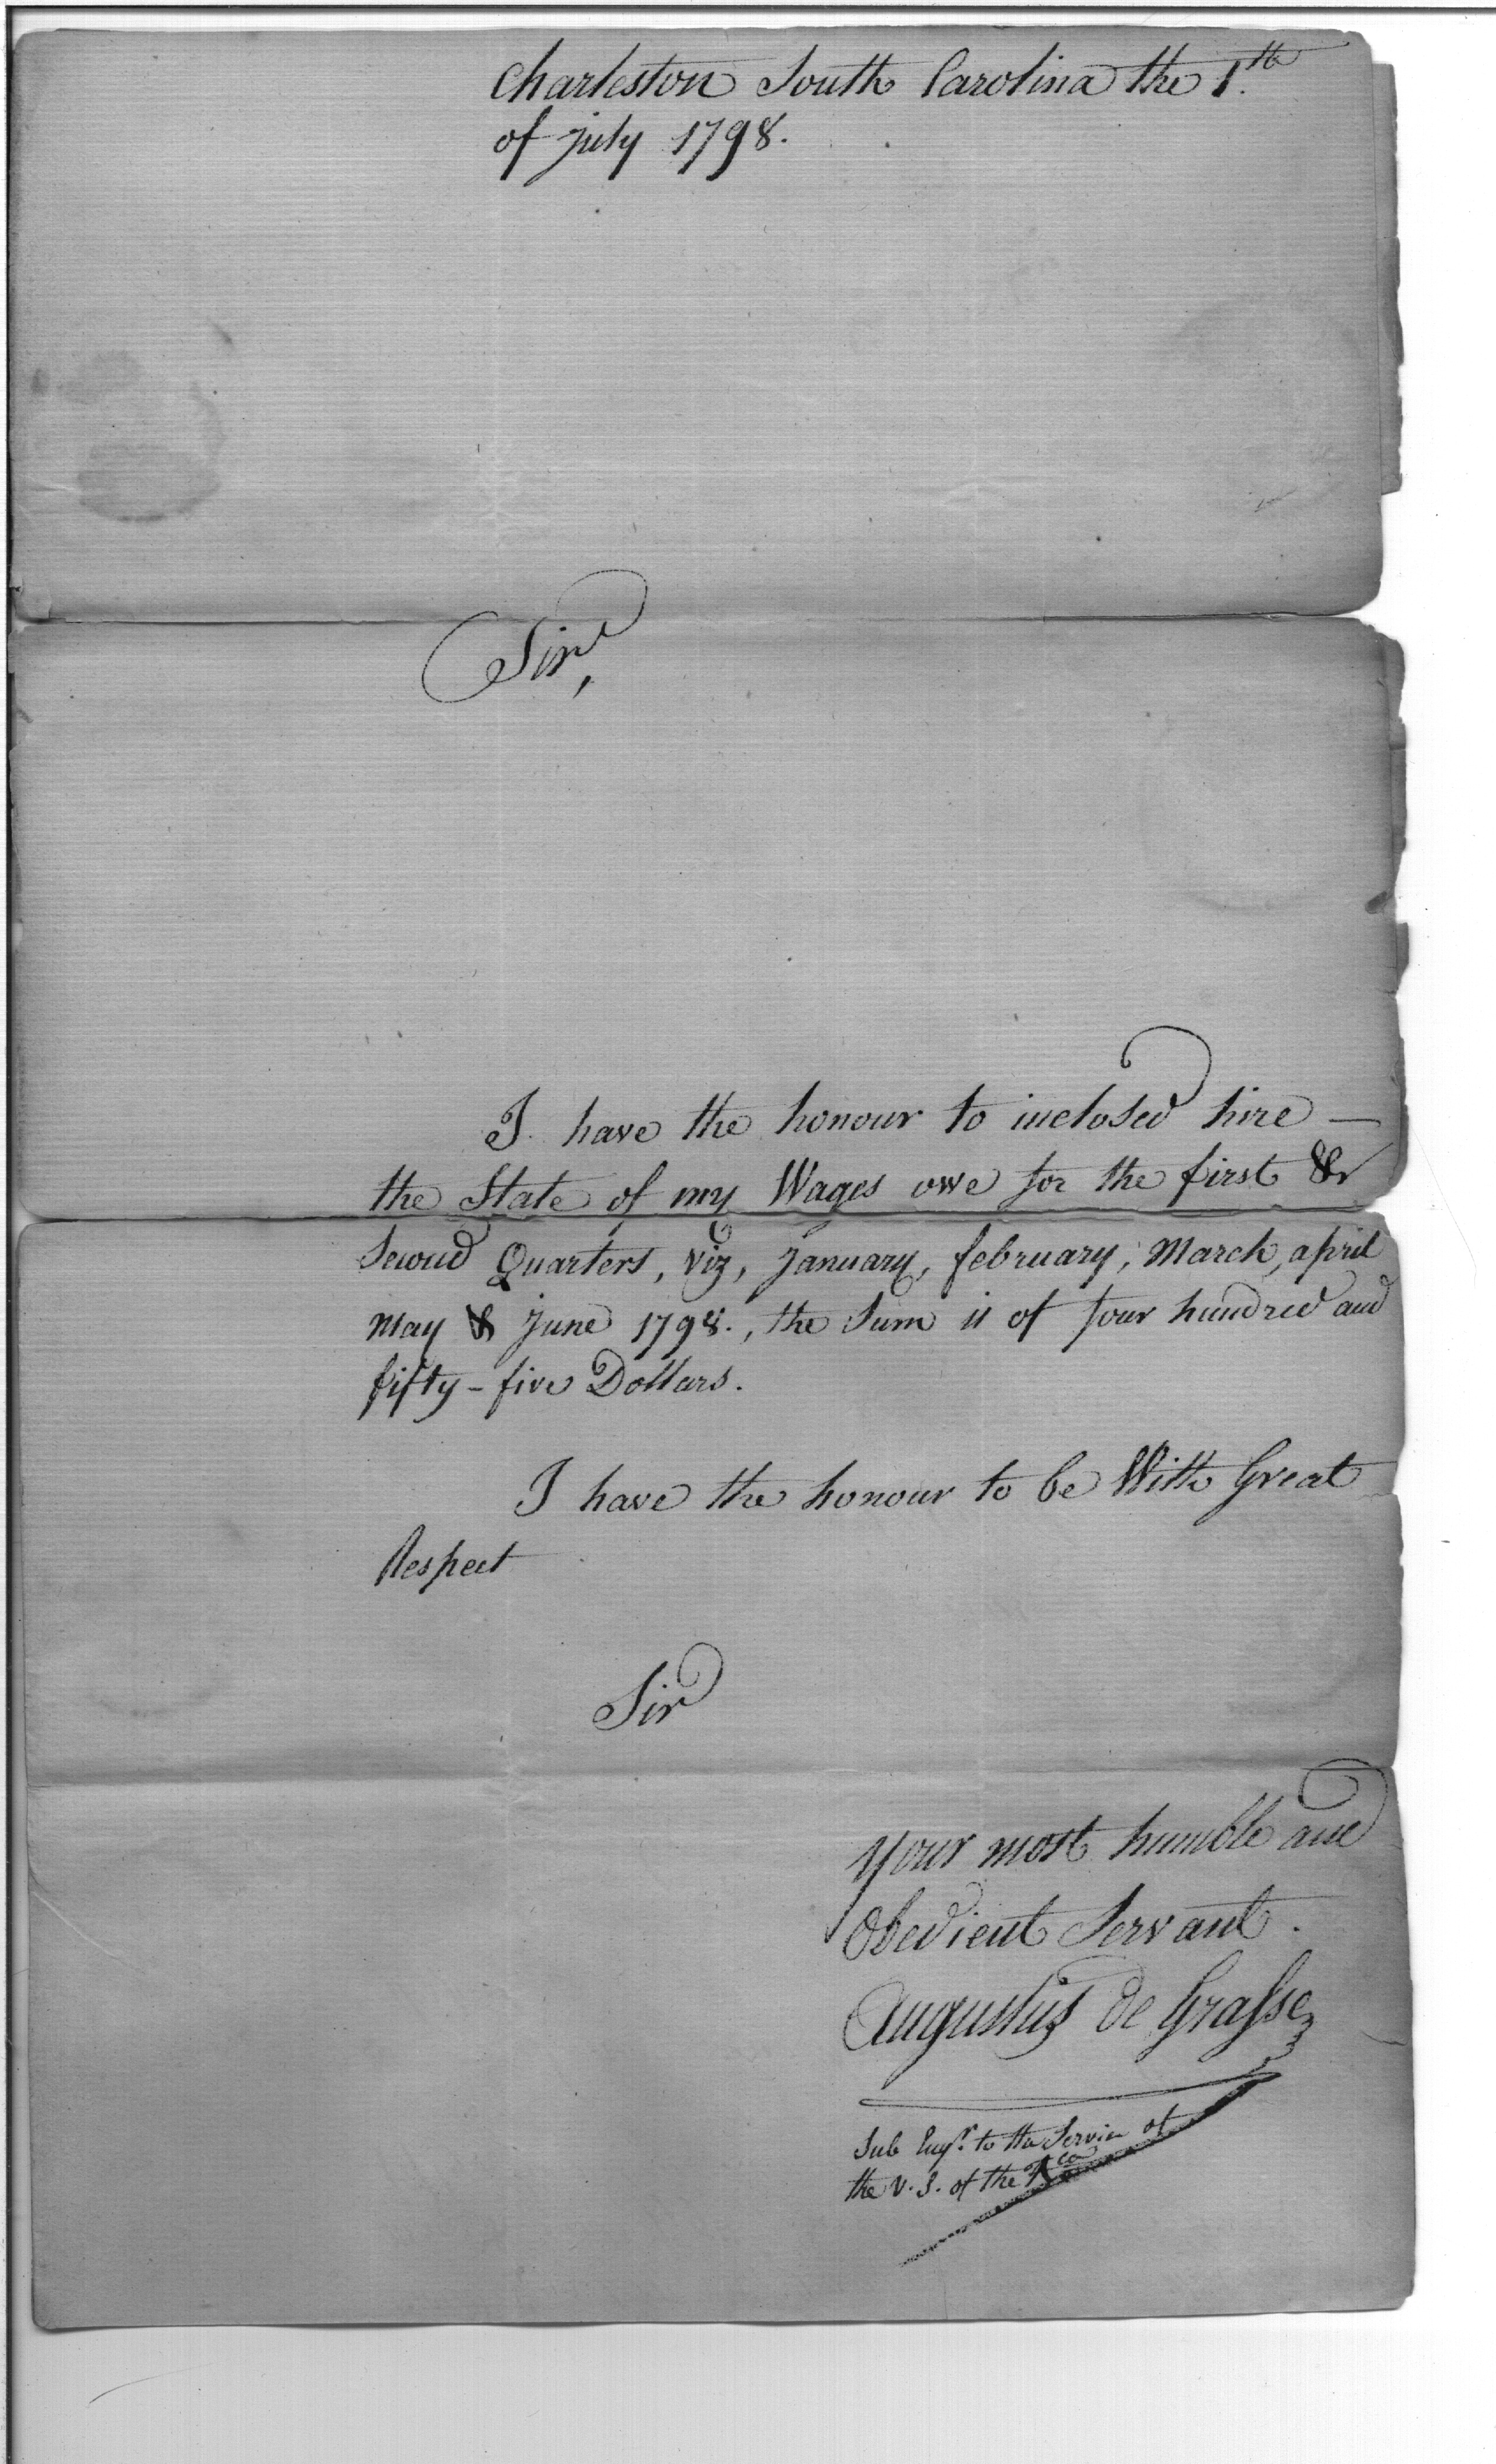 Charleston South Carolina the 1.th
of july 1798.
Sir,
I have the honour to inclosed hire —
the State of my Wages owe for the first &
Second Quarters, viz, January, february, March, april
may & June 1798., the Sum is of four hundred and
fifty-five Dollars.
I have the honour to be With Great
Respect
Sir
your most humble and
Obedient Servant.
Augustus de Grasse
Sub Engr. to the Service of
the U. S. of the